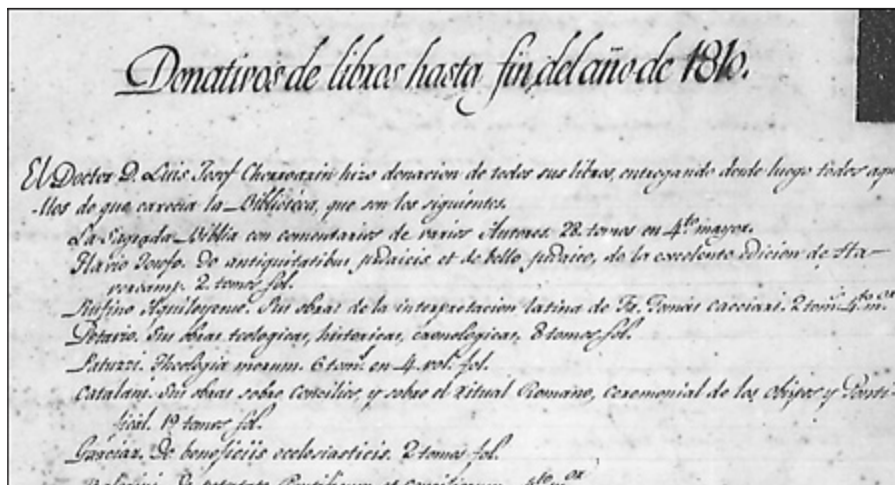 Donativos de libros hasta fin del año de 1810.
El Doctor D. Luis Josef Chorroarin hizo donacion de todos sus libros, entregando desde luego todos aque-
llos de que carecia la Biblioteca, que son los siguientes.
La Sagrada Biblia con comentarios de varios Autores. 28. tomos en 4.to mayor.
Flavio Josefo. De antiquitatibus judaicis et de bello judaico, de la excelente edicion de Ha-
vercamp. 2 tomos fol.
Rufino Aquileyense. Sus obras de la interpretacion latina de Fr. Tomás Cacciari. 2 tom. 4.to m.or
Petavio. Sus obras teologicas, historicas, cronologicas, 8 tomos fol.
Patuzzi. Theologia morum. 6 tom.s en 4. vol. fol.
Catalani. Sus obras sobre Concilios, y sobre el ritual Romano, ceremonial de los obispos y Ponti-
fical. 19 tomos fol.
Garcias. De beneficiis ecclesiasticis. 2 tomos fol.
De potestate Pontificum et conciliorum. 4.to m.or